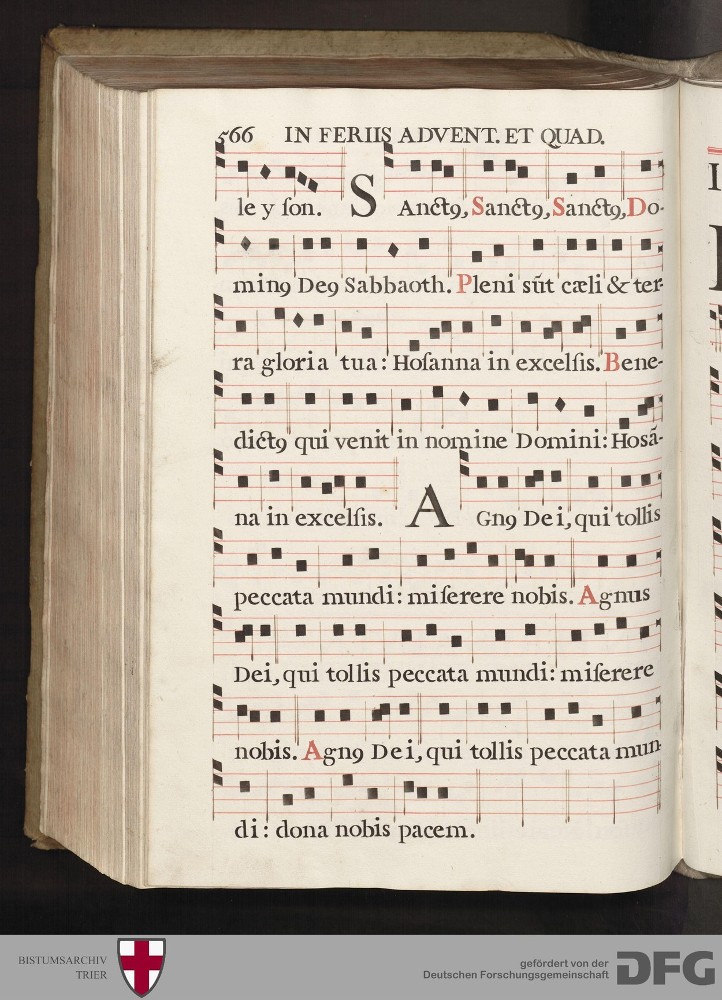 566 IN FERIIS ADVENT. ET QUAD.
le y ſon. SAnctꝯ, Sanctꝯ, Sanctꝯ, Do-
minꝯ Deꝯ Sabbaoth. Pleni sũt cæli & ter-
ra gloria tua: Hoſanna in excelſis. Bene-
dictꝯ qui venit in nomine Domini: Hosã-
na in excelſis. AGnꝯ Dei, qui tollis
peccata mundi: miſerere nobis. Agnus
Dei, qui tollis peccata mundi: miſerere
nobis. Agnꝯ Dei, qui tollis peccata mun-
di: dona nobis pacem.
BISTUMSARCHIV
TRIER
gefördert von der
Deutschen Forschungsgemeinschaft
DFG